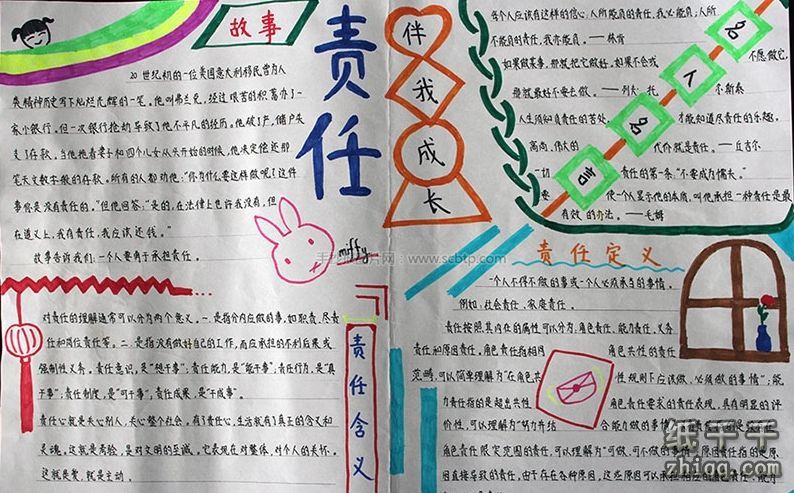 故事
20世纪初的一位美国意大利移民曾为人
类精神历史写下灿烂光辉的一笔。他叫弗兰克,经过艰苦的积蓄办了一
家小银行。但一次银行抢劫导致了他不平凡的经历。他破了产,储户失
去了存款。当他拖着妻子和四个儿女从头开始的时候,他决定偿还那
笔天文数字般的存款。所有的人都劝他:“你为什么要这样做呢?这件
事你是没有责任的。”但他回答:“是的,在法律上也许我没有,但
在道义上,我有责任,我应该还钱。”
故事告诉我们:一个人要勇于承担责任。
责任
miffy
对责任的理解通常可以分为两个意义。一是指分内应做的事,如职责、尽责
任和岗位责任等。二是指没有做好自己的工作,而应承担的不利后果或
强制性义务。责任意识,是“想干事”;责任能力,是“能干事”;责任行为,是“真
干事”;责任制度,是“可干事”;责任成果,是“干成事”。
责任心就是关心别人,关心整个社会。有了责任心,生活就有了真正的含义和
灵魂。这就是考验,是对文明的至诚。它表现在对整体,对个人的关怀。
这就是爱,就是主动。
责任含义
伴我成长
每个人应该有这样的信心:人所能负的责任,我必能负;人所
不能负的责任,我亦能负。——林肯
如果做某事,那就把它做好,如果不会或
不愿做它,
那就最好不要去做。——列夫·托
尔斯泰
人生须知负责任的苦处,
才能知道尽责任的乐趣。
高尚,伟大的
代价就是责任。——丘吉尔
一切
责任的第一条:“不要成为懦夫。”
使一个人显示他的本质,叫他承担一种责任是最
有效的办法。——毛姆
名人名言
责任定义
一个人不得不做的事或一个人必须承当的事情。
例如:社会责任、家庭责任。
责任按照其内在的属性可以分为角色责任、能力责任、义务
责任和原因责任。角色责任指相同
角色共性的责任
范畴,可以简单理解为“在角色共
性规则下应该做、必须做的事情”;能
力责任指的是超出共性
角色责任要求的责任表现,具有明显的评
价性,可以理解为“努力并结
合能力做的事情”
角色责任限定范围的责任,可以理解为“可做,可不做的事情”;原因责任指的是原
因直接导致的责任,由于存在各种原因,这些原因可以
手抄报图片网:www.scbtp.com
纸干干
zhigg.com